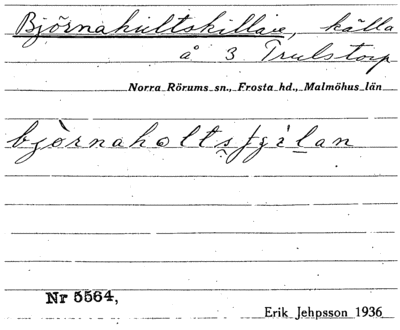 Björnahultskällare, källa
å 3 Trulstorp
Norra Rörums sn., Frosta hd., Malmöhus län
Nr 5564,
Erik Jehpsson 1936